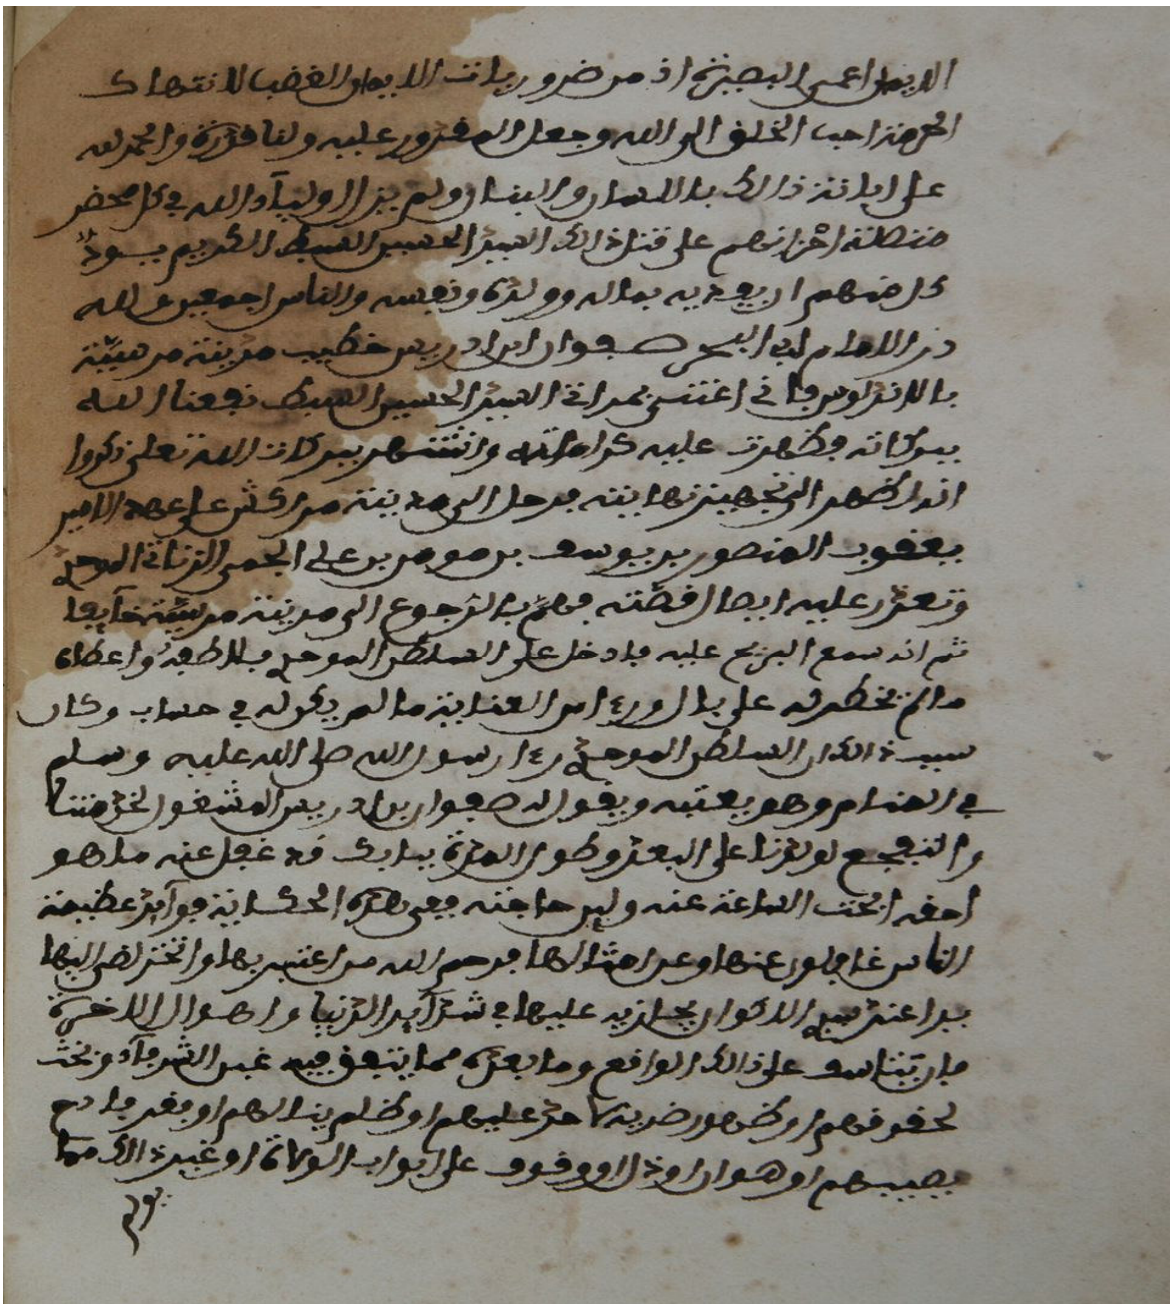 الايمان اعمى البصيرة اذ من ضروريات الايمان الغضب لانتهاك
احب الخلق الى الله وجعل المقدور عليه ولنا قدرة والحمد لله
على ذالك باللسان والبنان ولم يزل اولياء الله في كل محضر
احزانهم على قتل ذالك السيد الحسين السبط الكريم يود
كل منهم ان يفديه بماله وولده ونفسه والناس اجمعين
الامام ابي البحر صفوان ابن ادريس خطيب مدينة مرسية
بالاندلس في السيد الحسين السبط نفعنا الله
ببركاته فظهرت عليه كراماته وانتشهر ببركات الله تعلى ذكروا
انه اضطر الى تجهيز بنته فرحل الى مدينة مراكش على عهد الامير
يعقوب المنصور بن يوسف بن مومن بن علي الزناتي الموحدي
وتعذر عليه ايصال قصته فهم بالرجوع الى مدينة مرسية خائبا
ثم انه سمع البريح عليه فادخل على السلطن الموحدي فلاطفه واعطاه
ما لم يخطر له على بال وراى من العناية ما لم يكن له في حساب وكان
سبب ذالك ان السلطن الموحدي راى رسول الله صلى الله عليه وسلم
في المنام وهو يعتبه ويقول له صفوان بن ادريس المشغول
والتفجع لولدنا على البعد وطول المدة ببابك قد غفل عنه ما هو
ابحث الساعة عنه ولبي حاجته ففي هذه الحكاية فوائد عظيمة
الناس غافلون عنها وعن امثالها فرحم الله من اعتبر بها
عليها في شدائد الدنيا واهوال الاخرة
على ذالك الواقع وما بعده مما يتفق فيه غير الشرفاء
لحقوقهم او ظهور عليهم او ظلم ينالهم او فقر فادح
يصيبهم او هوان او ذل او وقوف على ابواب الولاة او غير ذالك مما